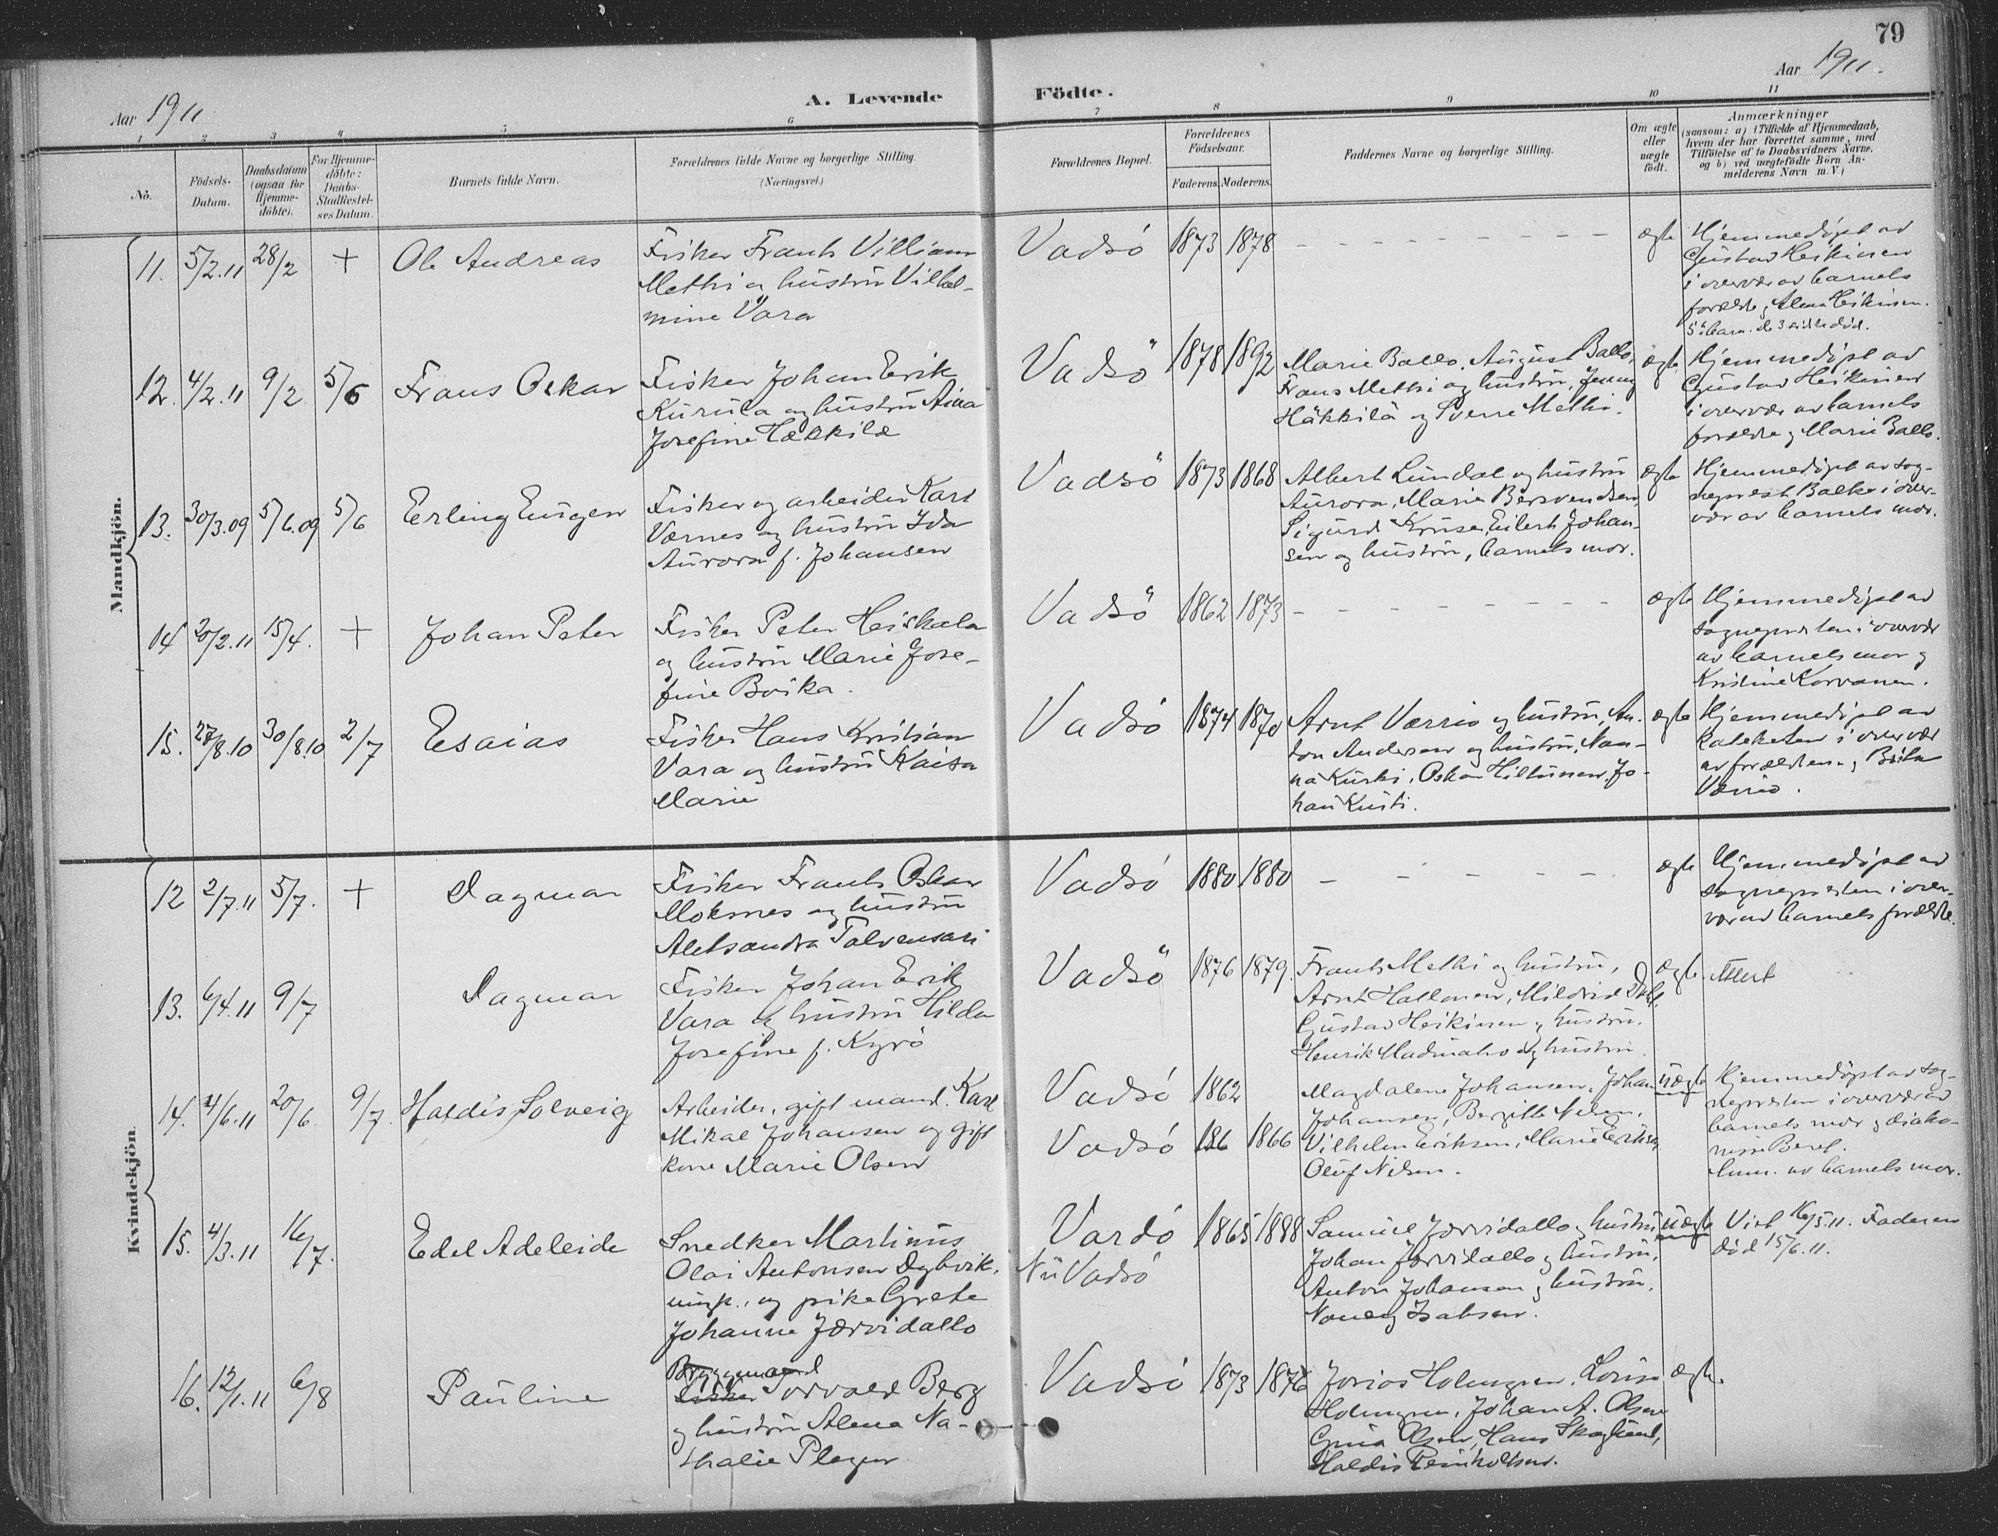 79
Aar 1911
A. Levende Födte.
Aar 1911.
1 2 3 4 5 6 7 8 9 10 11
No.
Födsels-
Datum.
Daabsdatum
(ogsaa for
Hjemme-
döbte).
For Hjemme-
döbte:
Daabs-
Stadfæstel-
ses Datum.
Barnets fulde Navn.
Forældrenes fulde Navne og borgerlige Stilling.
(Næringsvei.)
Forældrenes Bopæl.
Forældrenes
Födselsaar.
Faderens. Moderens.
Faddernes Navne og borgerlige Stilling.
Om ægte
eller
uægte
födt.
Anmærkninger
(saasom: a) i Tilfælde af Hjemmedaab,
hvem der har forrettet samme, med
Tilföielse af to Daabsvidners Navne,
og b) ved uægtefödte Börn An-
melderens Navn m. V.)
Mandkjön.
11. 5/2.11 28/2 + Ole Andreas
Fisker Frants Villiam
Methi og hustru Vilhel-
mine Vara
Vadsö 1873 1878 ægte
Hjemmedöpt av
Gustav Heikinen
i overvær av barnets
forældre og Alma Heikinen.
12. 4/2.11 9/2 5/6 Frans Oskar
Fisker Johan Erik
Kurula og hustru Aina
Josefine Hækkilæ
Vadsö 1878 1892
Marie Ballo, August Ballo,
Frans Methi og hustru, Jenny
Häkkilä og Sverre Methi.
ægte
Hjemmedöpt av
Gustav Heikinen
i overvær av barnets
forældre og Marie Ballo.
13. 30/3.09 5/6.09 5/6 Erling Eugen
Fisker og arbeider Karl
Værnes og hustru Ida
Aurora f. Johansen
Vadsö 1873 1868
Albert Lundal og hustru
Aurora, Marie Bersvendsen,
Sigurd Kruse, Eilert Johan-
sen og hustru, barnets mor.
ægte
Hjemmedöpt av sog-
neprest Balke i over-
vær av barnets mor.
14 20/2.11 15/4. + Johan Peter
Fisker Peter Heiskala
og hustru Marie Jose-
fine Boika.
Vadsö 1862 1873 ægte
Hjemmedöpt av
sognepresten i overvær
av barnets mor og
Kristine Korvanen.
15. 27/8.10 30/8.10 2/7 Esaias
Fisker Hans Kristian
Vara og hustru Kaisa
Marie
Vadsö 1874 1870
Arnt Værrio og hustru, An-
ton Andersen og hustru, Nan-
na Kurki, Oskar Hiltunen, Jo-
han Kusti.
ægte
Hjemmedöpt av
kateketen i overvær
av forældrene og Brita
Værrio.
Kvindekjön.
12 2/7.11 5/7. + Dagmar
Fisker Frants Oskar
Moksnes og hustru
Aleksandra Talvensari
Vadsö 1880 1880 ægte
Hjemmedöpt av
sognepresten i over-
vær av barnets forældre.
13. 6/4.11 9/7 Dagmar
Fisker Johan Erik
Vara og hustru Hilda
Josefine f. Kyrö
Vadsö 1876 1879.
Frants Methi og hustru,
Arnt Hallonen, Mildrid Dahl,
Gustav Heikinen og hustru.
Henrik Madmaho og hustru.
ægte. Attest
14. 4/6.11 20/6. 9/7. Haldis Solveig
Arbeider, gift mand. Karl
Mikal Johansen og gift
kone Marie Olsen
Vadsö 1862
Vadsö 186 1866
Magdalene Johansen, Johan
Johansen, Bergitte Nilsen,
Vilhelm Eriksen, Marie Eriksen,
Oluf Nilsen.
uægte
Hjemmedöpt av sog-
nepresten i overvær av
barnets mor og diako-
nisse Berg.
Anm. av barnets mor.
15. 4/3.11 16/7. Edel Adeleide
Snedker Martinus
Olai Antonsen Dybvik,
ungk., og pike Grete
Johanne Jærvidallo
Vardö
Nu Vadsö
1865 1888
Samuel Jærvidallo og hustru
Johan Jærvidallo og hustru,
Anton Johansen og hustru,
uægte
Viet 16/5.11. Faderen
död 15/6.11.
16. 12/1.11 6/8 Pauline
Bryggemand
Fisker Torvald Berg
og hustru Alma Na-
thalie Plazer
Vadsö 1873 1876
Jovias Holmgren, Lovise
Holmgren, Johan A. Olsen
Gina Olsen, Hans Skoglund,
Haldis Reinholtsen.
ægte.